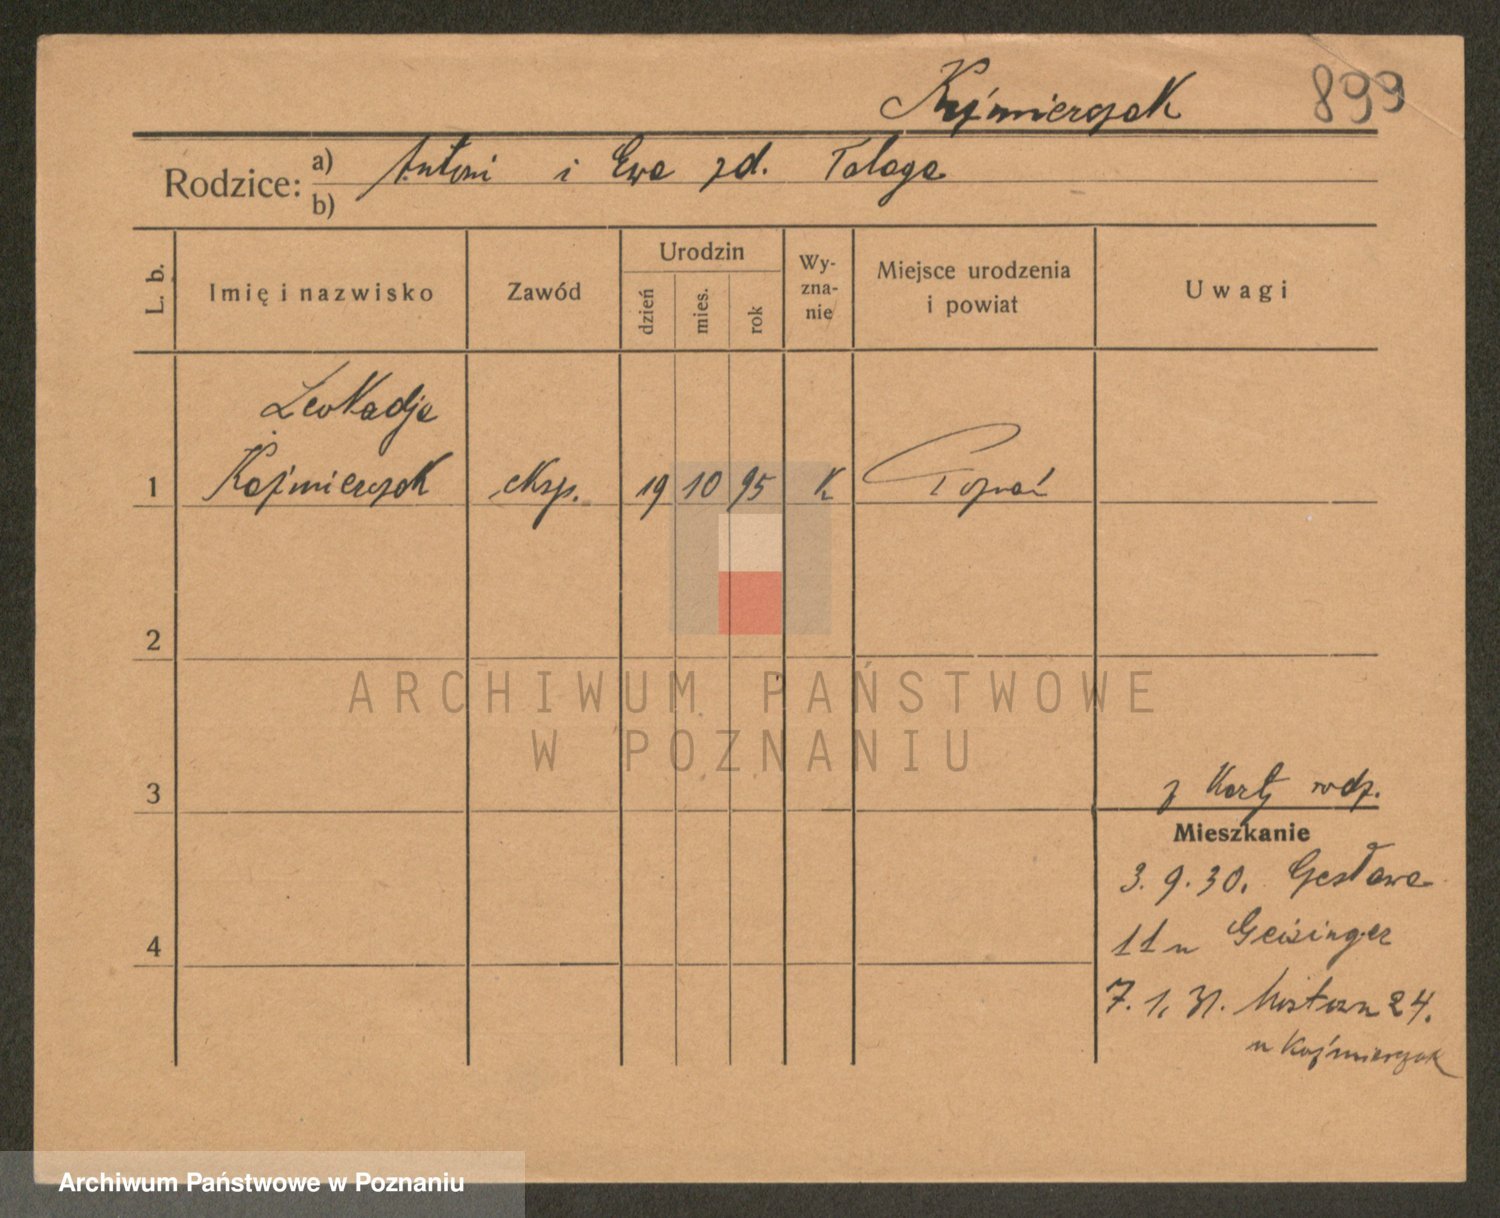 Kaźmierczak 899
Rodzice: a) Antoni i Ewa zd. Talaga
b)
L. b. Imię i nazwisko Zawód Urodzin dzień mies. rok Wy-zna-nie Miejsce urodzenia i powiat Uwagi
Leokadja
1 Kaźmierczak eksp. 19 10 95 K Poznań
2
ARCHIWUM PAŃSTWOWE
W POZNANIU
3 z Karty rodz.
Mieszkanie
3. 9. 30.
4 11 u Geisinger
7. 1. 31. 24.
u Kaźmierczak
Archiwum Państwowe w Poznaniu